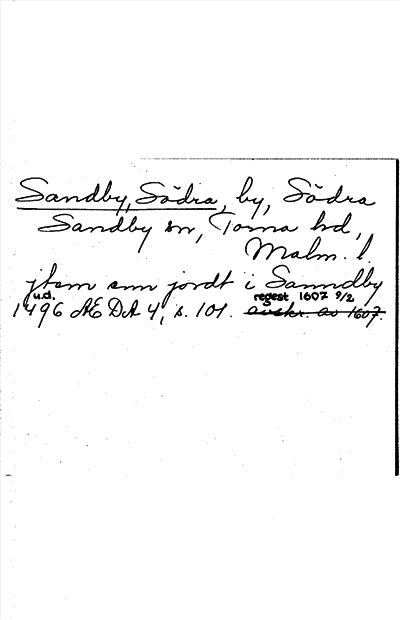 Sandby, Södra, by, Södra
Sandby sn, Torna hd,
Malm. l.
jtem enn jordt i Sanndby
u.d. regest 1607 9/2
1496 ÆDA 4, s. 101. avskr. av 1607.